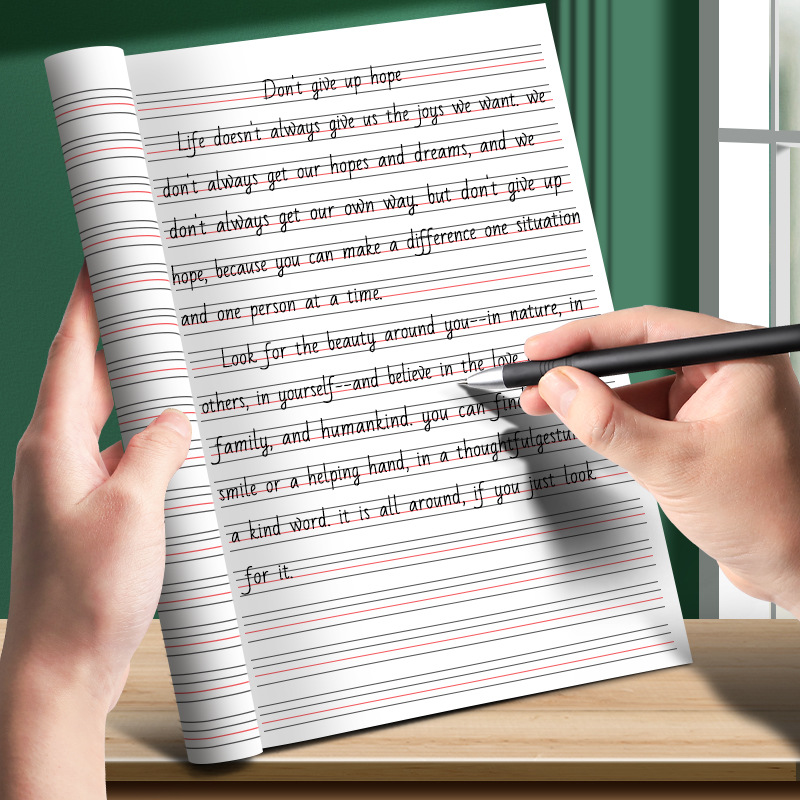 Don't give up hope
Life doesn't always give us the joys we want. we
don't always get our hopes and dreams, and we
don't always get our own way. but don't give up
hope, because you can make a difference one situation
and one person at a time.
Look for the beauty around you--in nature, in
others, in yourself--and believe in the love
family, and humankind. you can find
smile or a helping hand, in a thoughtfulgestu
a kind word. it is all around, if you just look
for it.